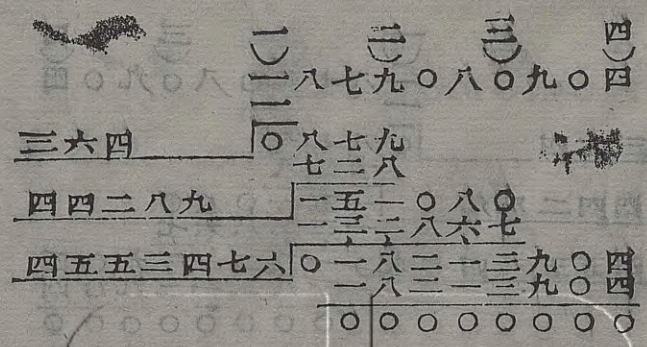 一) 二) 三) 四)
一八七九〇八〇九〇四
一
三六四 〇八七九
七二八
四四二八九 一五一〇八〇
一三二八六七
四五五三四七六 〇一八二一三九〇四
一八二一三九〇四
〇〇〇〇〇〇〇〇